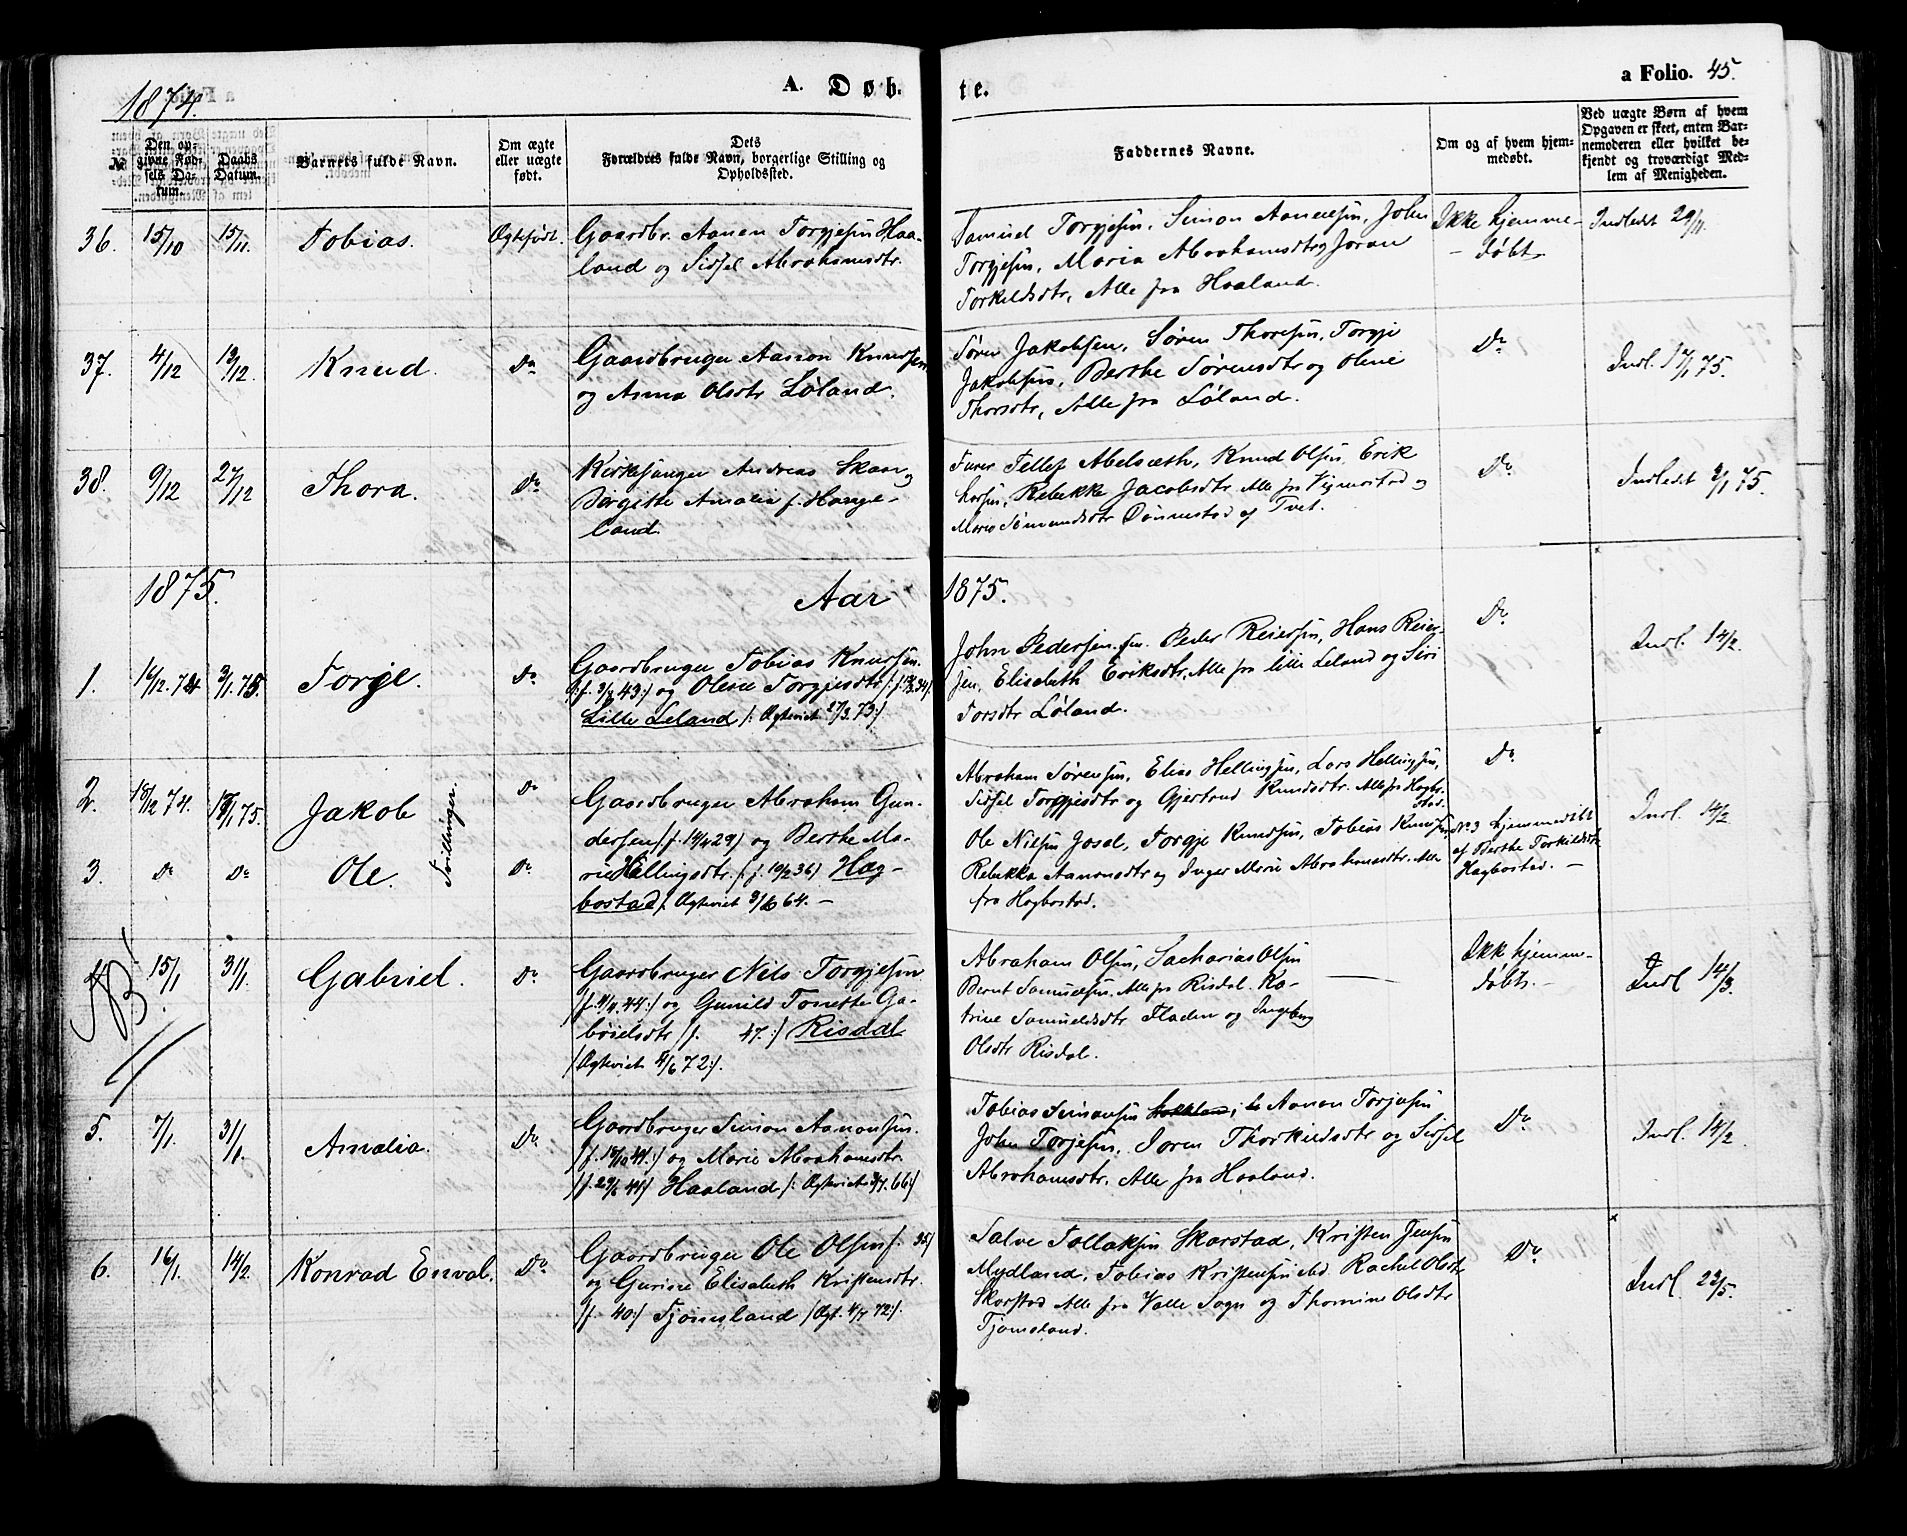 1874.
A. Døb-
te.
a Folio. 45.
№
Den op-
givne Fød-
sels Da-
tum.
Daabs
Datum.
Barnets fulde Navn.
Om ægte
eller uægte
født.
Dets
Forældres fulde Navn, borgerlige Stilling og
Opholdssted.
Faddernes Navne.
Om og af hvem hjem-
medøbt.
Ved uægte Børn af hvem
Opgaven er skeet, enten Bar-
nemoderen eller hvilket be-
kjendt og troværdigt Med-
lem af Menigheden.
36. 15/10 15/11. Tobias. Ægtefødt.
Gaardbr. Aanen Torgjesen Haa-
land og Sidsel Abrahamsdtr.
Samuel Torgjesen, Simon Aanensen, John
Torgjesen, Maria Abrahamsdtr og Joran
Torkildsdtr, Alle fra Haaland.
Ikke hjemme-
- døbt.
Indledet 29/11.
37. 4/12 /12. Knud. Do
Gaardbruger Aanon Knudsen
og Anna Olsdtr Løland.
Søren Jakobsen, Søren Thoresen, Torgje
Jakobsen, Berthe Sørensdtr og Oline
Thorsdtr, Alle fra Løland.
Do
Indl. 17/1 75.
38. 9/12 27/12 Thora. Do
Kirkesanger Andreas Skaar og
Bergitte Amalia f. Hauge-
land.
Furer Tellef Abelsæth, Knud Olsen, Erik
Rebekke Jacobsdtr Alle fra Vigmostad og
Maria Sømundsdtr Dønnestad af Tvet.
Do
Indledet /1 75.
1875.
Aar
1875.
1. 16/12.74 3/1.75 Torgje. Do
Gaardbruger Tobias Knudsen.
43:) og Olene Torgjesdtr 34).
Lille Leland /: Ægteviet 27/3.73:/
John Pedersen sen. Peder Reiersen, Hans Reier-
sen, Elisabeth Eriksdtr, Alle fra lille Leland og Siri
Torsdtr Løland.
Do
Indl. 14/2.
2. /12 74. /1 75. Jakob Do
Tvillinger.
3. Do Do Ole. Do
Gaardbruger Abraham Gun-
dersen /: f. 14/4 29) og Berthe Ma-
rie Hellingsdtr. /: f. 19/2 36) Hag-
bostad /: Ægteviet /6 64. -
Abraham Sørensen, Elias Hellingsen, Lars Hellingsen,
Sidsel Torgjesdtr og Gjertrud Knudsdtr. Alle fra Hagbo-
stad.
Ole Nilsen Josdl, Torgje Knudsen, Tobias Knudsen
Rebekka Aanonsdtr og Inger Marie Abrahamsdtr. Alle
fra Hagbostad.
Do
No 3 hjemmedøbt
af Berthe Torkildsdtr
Hagbostad. -
Indl. 14/2.
NB!
15/1 31/1. Gabriel. Do
Gaardbruger Nils Torgjesen
/:f. 44:) og Gunild Tonette Ga-
brielsdtr /:f. 47:) Risdal
/Ægteviet /6 72:).
Abraham Olsen, Sacharias Olsen
Bernt Samuelsen, Alle fra Risdal. Ka-
trine Samuelsdtr Fladen og Ingeborg
Olsdtr Risdal.
Ikk hjemme-
døbt. -
Indl 14/3.
5. 7/1. 31/1. Amalia. Do
Gaardbruger Simon Aanonsen.
/f. 41:) og Marie Abrahamsdtr
/f. 29/ 44) Haaland /: Ægteviet /7.66:)
Tobias Simonsen Aanon Torjesen
John Torjesen, Joren Thorkildsdtr og Sidsel
Abrahamsdtr. Alle fra Haaland.
Do
Indl. 14/2.
6. 16/1. 14/2. Konrad Enval. Do
Gaardbruger Ole Olsen f. 35)
og Gurine Elisabeth Kristensdtr.
/f. 40:) Tjømsland /Ægt. 4/7 72:).
Salve Tollaksen Skarstad, Kristen Jensen
Mydland, Tobias Kristensen ibd. Rachel Olsdtr
Skarstad Alle fra Valle Sogn og Thomine Olsdtr
Tjomsland.
Do
Indl. 23/5.